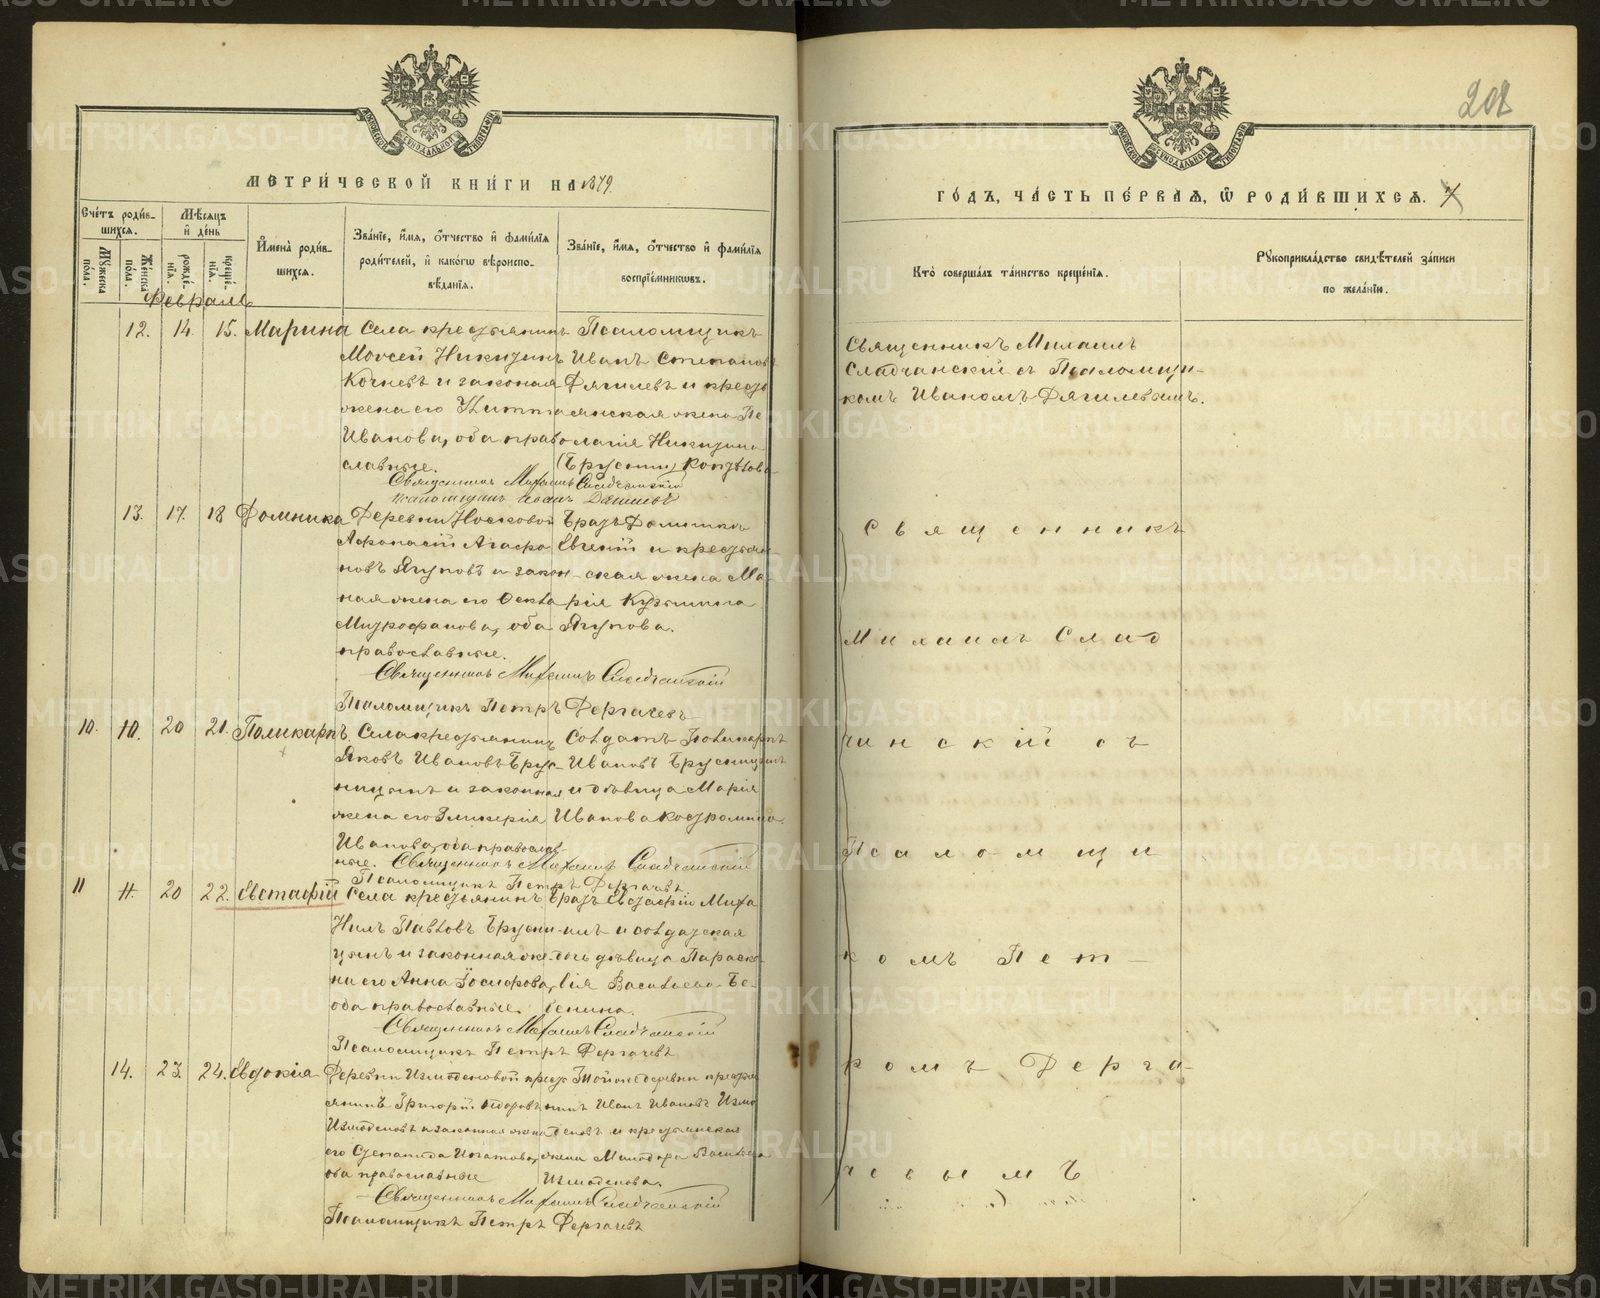 МЕТРИ́ЧЕСКОЙ КНИ́ГИ НА 1879.
Счéтъ роди́в-
шихся.
Мѣ́сяцъ
и҆ дéнь
Мꙋ́жеска по́ла.
Же́нска по́ла.
рожде́-нїѧ.
креще́-нїѧ.
И҆мена̀ роди́в-
шихся.
Зва́нїе, и҆́мѧ, ѻ҆́тчество и҆ фами́лїѧ
роди́телей, и҆ како́гѡ вѣроиспо-
вѣ́данїѧ.
Зва́нїе, и҆́мѧ, ѻ҆́тчество и҆ фами́лїѧ
воспрїе́мникѡвъ.
Февраль
12. 14. 15. Марина
Села крестьянинъ
Моѵсей Никитинъ
Кочневъ и законная
жена его
Иванова, оба право
славные.
Псаломщикъ
Иванъ Степановъ
Дягилевъ и кресть
янская жена Пе
лагія Никитина
Священникъ Михаилъ Сладчанскій
псаломщикъ Иоанъ Дягилевъ
13. 17. 18 Домника
Деревни
Афонасій Агафо
новъ Ягуповъ и закон-
ная жена его
Митрофанова, оба
православные.
Братъ Домники
Евгеній и крестьян
ская жена Ма
рія Кузьмина
Ягупова.
Священникъ Михаилъ Сладчанскій
Псаломщикъ Петръ Дергачевъ
10. 10. 20 21. Поликарпъ
Села крестьянинъ
Яковъ Ивановъ Брус-
ницынъ и законная
жена его Гликерія
Ивановна, оба православ-
ные.
Солдатъ Поликарпъ
Ивановъ Брусницынъ
и дѣвица Марія
Иванова Костромина.
Священникъ Михаилъ Сладчанскій
Псаломщикъ Петръ Дергачевъ
11 11. 20 22. Евстафій
Села крестьянинъ
Нилъ Павловъ Брусни-
цынъ и законная же-
на его Анна
оба православные.
Братъ Евстафій Миха
илъ и солдатская
дочь дѣвица Параске
вія Васильева Бе-
Священникъ Михаилъ Сладчанскій
Псаломщикъ Петръ Дергачевъ
14. 23. 24. Евдокія
Деревни Измоденовой крест
янинъ Григорій Ѳедоровъ
Измоденовъ и законная жена
его Степанида Игнатова,
оба православные
Той же деревни крестья
нинъ Иванъ Ивановъ Измо
деновъ и крестьянская
жена Васильева
Измоденова.
Священникъ Михаилъ Сладчанскій
Псаломщикъ Петръ Дергачевъ
202
ГО́ДЪ, ЧА́СТЬ ПЕ́РВАѦ, Ѡ҆ РОДИ́ВШИХСѦ.
Кто̀ соверша́лъ та́инство креще́нїѧ.
Рꙋкоприкла́дство свидѣ́телей за́писи
по жела́нїю.
Священникъ Михаилъ
Сладчанскій съ Псаломщи-
комъ Иваномъ Дягилевымъ.
Священникъ
Михаилъ Слад
чанскій съ
Псаломщи
комъ Пет-
ромъ Дерга-
чевымъ